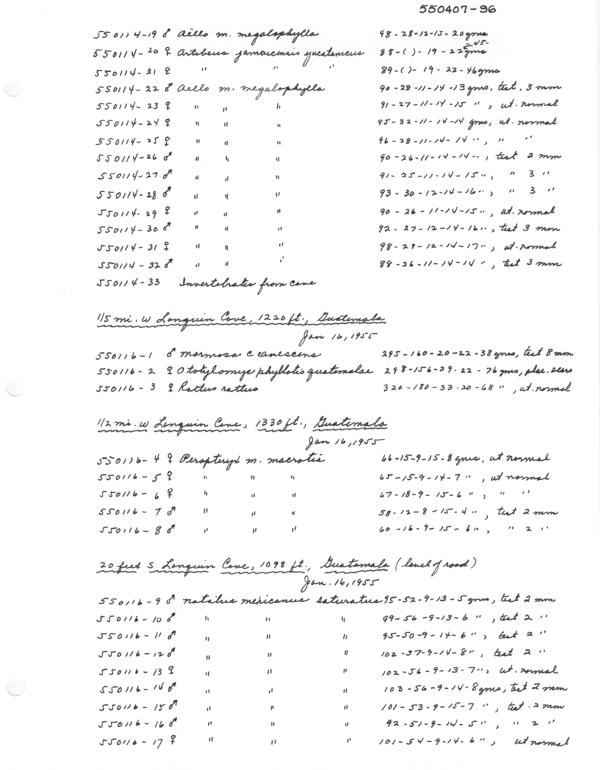 550407-96
550114-19 ♂ Aëllo m. megalophylla 98-28-12-15-20 gms
550114-20 ♀ Artibeus jamaicensis yucatanicus 88-( )-19-22-45-gms
550114-21 ♀ " " " 89-( )-19-22-46 gms
550114-22 ♂ Aello m. megalophylla 90-28-11-14-13 gms, test. 3 mm
550114-23 ♀ " " " 91-27-11-14-15 ", ut. normal
550114-24 ♀ " " " 95-32-11-14-14 gms, ut. normal
550114-25 ♀ " " " 96-28-11-14-14 ", " "
550114-26 ♂ " " " 90-26-11-14-14 ", test 2 mm
550114-27 ♂ " " " 91-25-11-14-15 ", " 3 "
550114-28 ♂ " " " 93-30-12-14-16 ", " 3 "
550114-29 ♀ " " " 90-26-11-14-15 ", ut. normal
550114-30 ♂ " " " 92-27-12-14-16 ", test 3 mm
550114-31 ♀ " " " 98-29-12-14-17 ", ut. normal
550114-32 ♂ " " " 88-26-11-14-14 ", test 3 mm
550114-33 Invertebrates from cave
1/5 mi. W Lanquin Cave, 1220 ft., Guatemala
Jan 16, 1955
550116-1 ♂ Marmosa c canescens 295-160-20-22-38 gms, test 8 mm
550116-2 ♀ Ototylomys phyllotis guatemalae 298-156-29-22-76 gms, plac. scars
550116-3 ♀ Rattus rattus 320-180-33-20-68 ", ut. normal
1/2 mi. W Lanquin Cave, 1330 ft., Guatemala
Jan 16, 1955
550116-4 ♀ Peropteryx m. macrotis 66-15-9-15-8 gms, ut normal
550116-5 ♀ " " " 65-15-9-14-7 ", ut normal
550116-6 ♀ " " " 67-18-9-15-6 ", " "
550116-7 ♂ " " " 58-12-8-15-4 ", test 2 mm
550116-8 ♂ " " " 60-16-9-15-6 ", " 2 "
20 feet S Lanquin Cave, 1098 ft., Guatemala (level of road)
Jan. 16, 1955
550116-9 ♂ Natalus mexicanus saturatus 95-52-9-13-5 gms, test 2 mm
550116-10 ♂ " " " 99-56-9-13-6 ", test 2 "
550116-11 ♂ " " " 95-50-9-14-6 ", test 2 "
550116-12 ♂ " " " 102-37-9-14-8 ", test 2 "
550116-13 ♀ " " " 102-56-9-13-7 ", ut. normal
550116-14 ♂ " " " 103-56-9-14-8 gms, test 2 mm
550116-15 ♂ " " " 101-53-9-15-7 ", test. 2 mm
550116-16 ♂ " " " 92-51-9-14-5 ", " 2 "
550116-17 ♀ " " " 101-54-9-14-6 ", ut normal